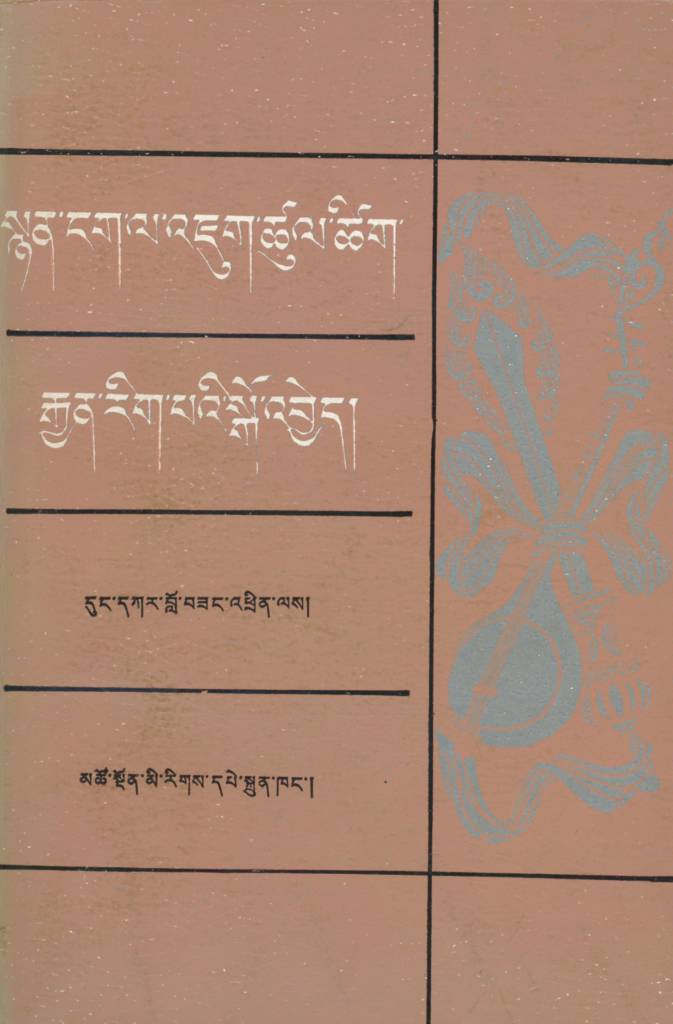 སྙན་ངག་ལ་འཇུག་ཚུལ་ཚིག་
རྒྱན་རིག་པའི་སྒོ་འབྱེད།
དུང་དཀར་བློ་བཟང་འཕྲིན་ལས།
མཚོ་སྔོན་མི་རིགས་དཔེ་སྐྲུན་ཁང་།